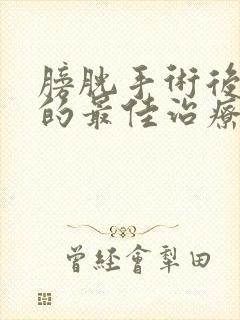 膀胱手術後
的最佳治療
曾經會犁田